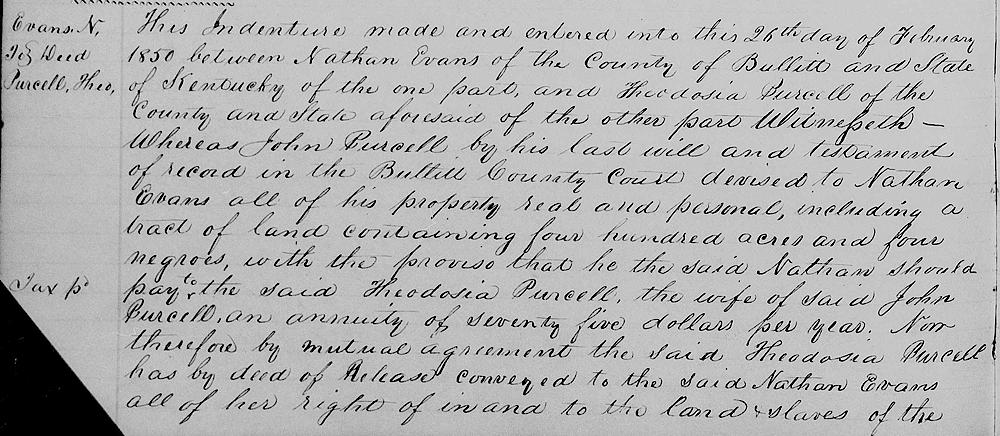 Evans, N,
To } Deed
Purcell, Theo,
This Indenture made and entered into this 26th day of February
1850 between Nathan Evans of the County of Bullitt and State
of Kentucky of the one part, and Theodosia Purcell of the
County and State aforesaid of the other part Witnesseth –
Whereas John Purcell by his last will and testament
of record in the Bullitt County Court devised to Nathan
Evans all of his property real and personal, including a
tract of land containing four hundred acres and four
negroes, with the proviso that he the said Nathan should
pay to the said Theodosia Purcell, the wife of said John
Purcell, an annuity of seventy five dollars per year. Now
therefore by mutual agreement the said Theodosia Purcell
has by deed of Release conveyed to the said Nathan Evans
all of her right of in and to the land & slaves of the
Tax pd